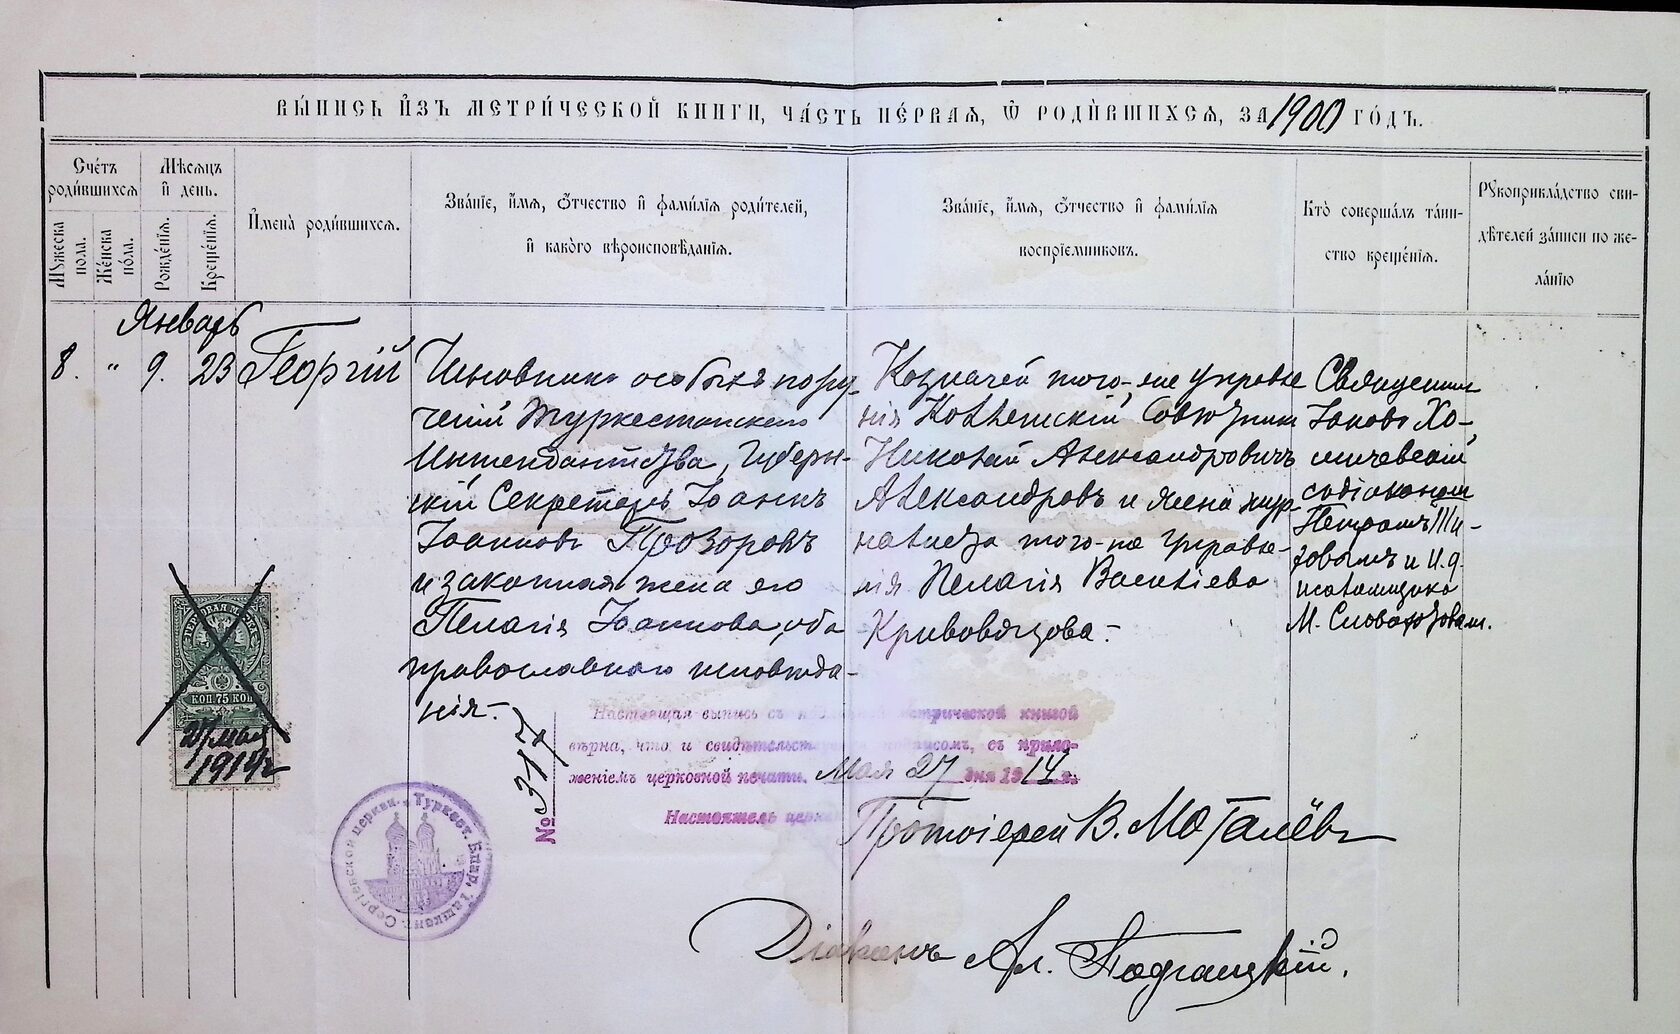 ВЫ́ПИСЬ И҆ЗЪ МЕТРИ́ЧЕСКОЙ КНИГИ, ЧА́СТЬ ПЕ́РВАѦ, Ѡ҆ РОДИ́ВШИХСѦ, ЗА 1900 ГО́ДЪ.
Сче́тъ роди́вшихсѧ
Мѣ́сѧцъ и҆ день.
Мꙋ́жеска пола.
Же́нска по́ла.
Рожде́нїѧ.
Креще́нїѧ.
И҆мена̀ роди́вшихсѧ.
Зва́нїе, и҆́мѧ, ѻ҆́тчество и҆ фами́лїѧ роди́телей,
и҆ како́го вѣроисповѣ́данїѧ.
Зва́нїе, и҆́мѧ, ѻ҆́тчество и҆ фами́лїѧ
воспрїе́мниковъ.
Кто̀ соверша́лъ та́ин-
ство креще́нїѧ.
Рꙋкоприкла́дство сви-
дѣ́телей за́писи по же-
ла́нїю
Январь
8. " 9. 23 Георгій
Чиновникъ особыхъ пору-
ченій Туркестанскаго
Интендантства, Губерн-
скій Секретарь Іоаннъ
Іоанновъ Прозоровъ
и законная жена его
Пелагія Іоаннова, оба
православнаго исповѣда-
нія.-
Казначей того-же управле
нія Коллежскій Совѣтникъ
Николай Александровичъ
Александровъ и жена жур-
налиста того-же управле-
нія Пелагія Васильева
Кривовязова.-
Священник
Іаковъ Хо-
мичевскій
съ діакономъ
Петромъ
и И.д.
псаломщика
М. Словохотовым.
ГЕРБОВАЯ МАРКА
КОП. 75 КОП.
27 мая
1914 г
№ 317
Настоящая выпись съ подлинной метрической книгой
вѣрна, что и свидѣтельствуется подписомъ, съ прило-
женіемъ церковной печати. Мая 27 дня 1914 г.
Настоятель церкви Протоіерей В.
Діаконъ Ал.
Туркест. Епар. Ташкент. Сергіевской церкви